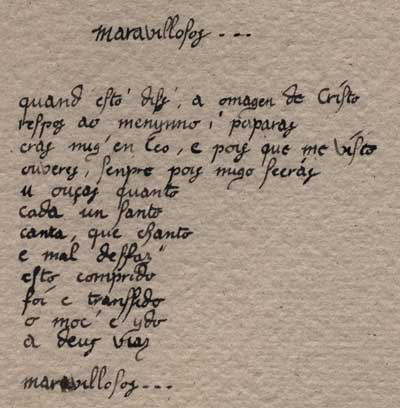 maravillosos ---
quand' esto diss', a omagen de Cristo
respos ao menynno: "paparas
cras mig' en Ceo, e pois que me visto
ouveres, senpre pois migo seerás
u ouças quanto
cada un santo
canta, que chanto
e mal desfaz"
esto comprido
foi e transsido
o moç' e ydo
a deus viaz
maravillosos ---